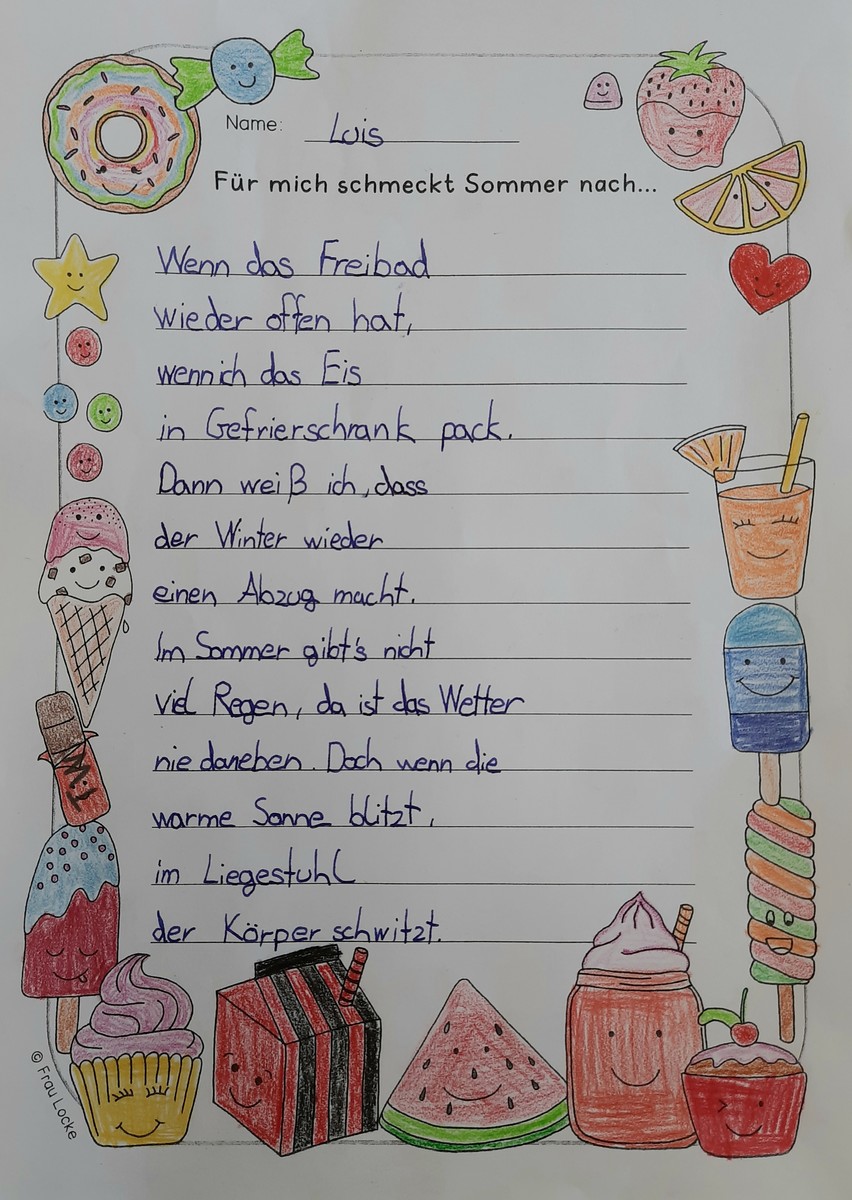 Name: Luis
Für mich schmeckt Sommer nach...
Wenn das Freibad
wieder offen hat,
wenn ich das Eis
in Gefrierschrank pack.
Dann weiß ich, dass
der Winter wieder
einen Abzug macht.
Im Sommer gibt's nicht
viel Regen, da ist das Wetter
nie daneben. Doch wenn die
warme Sonne blitzt,
im Liegestuhl
der Körper schwitzt.
© Frau Locke